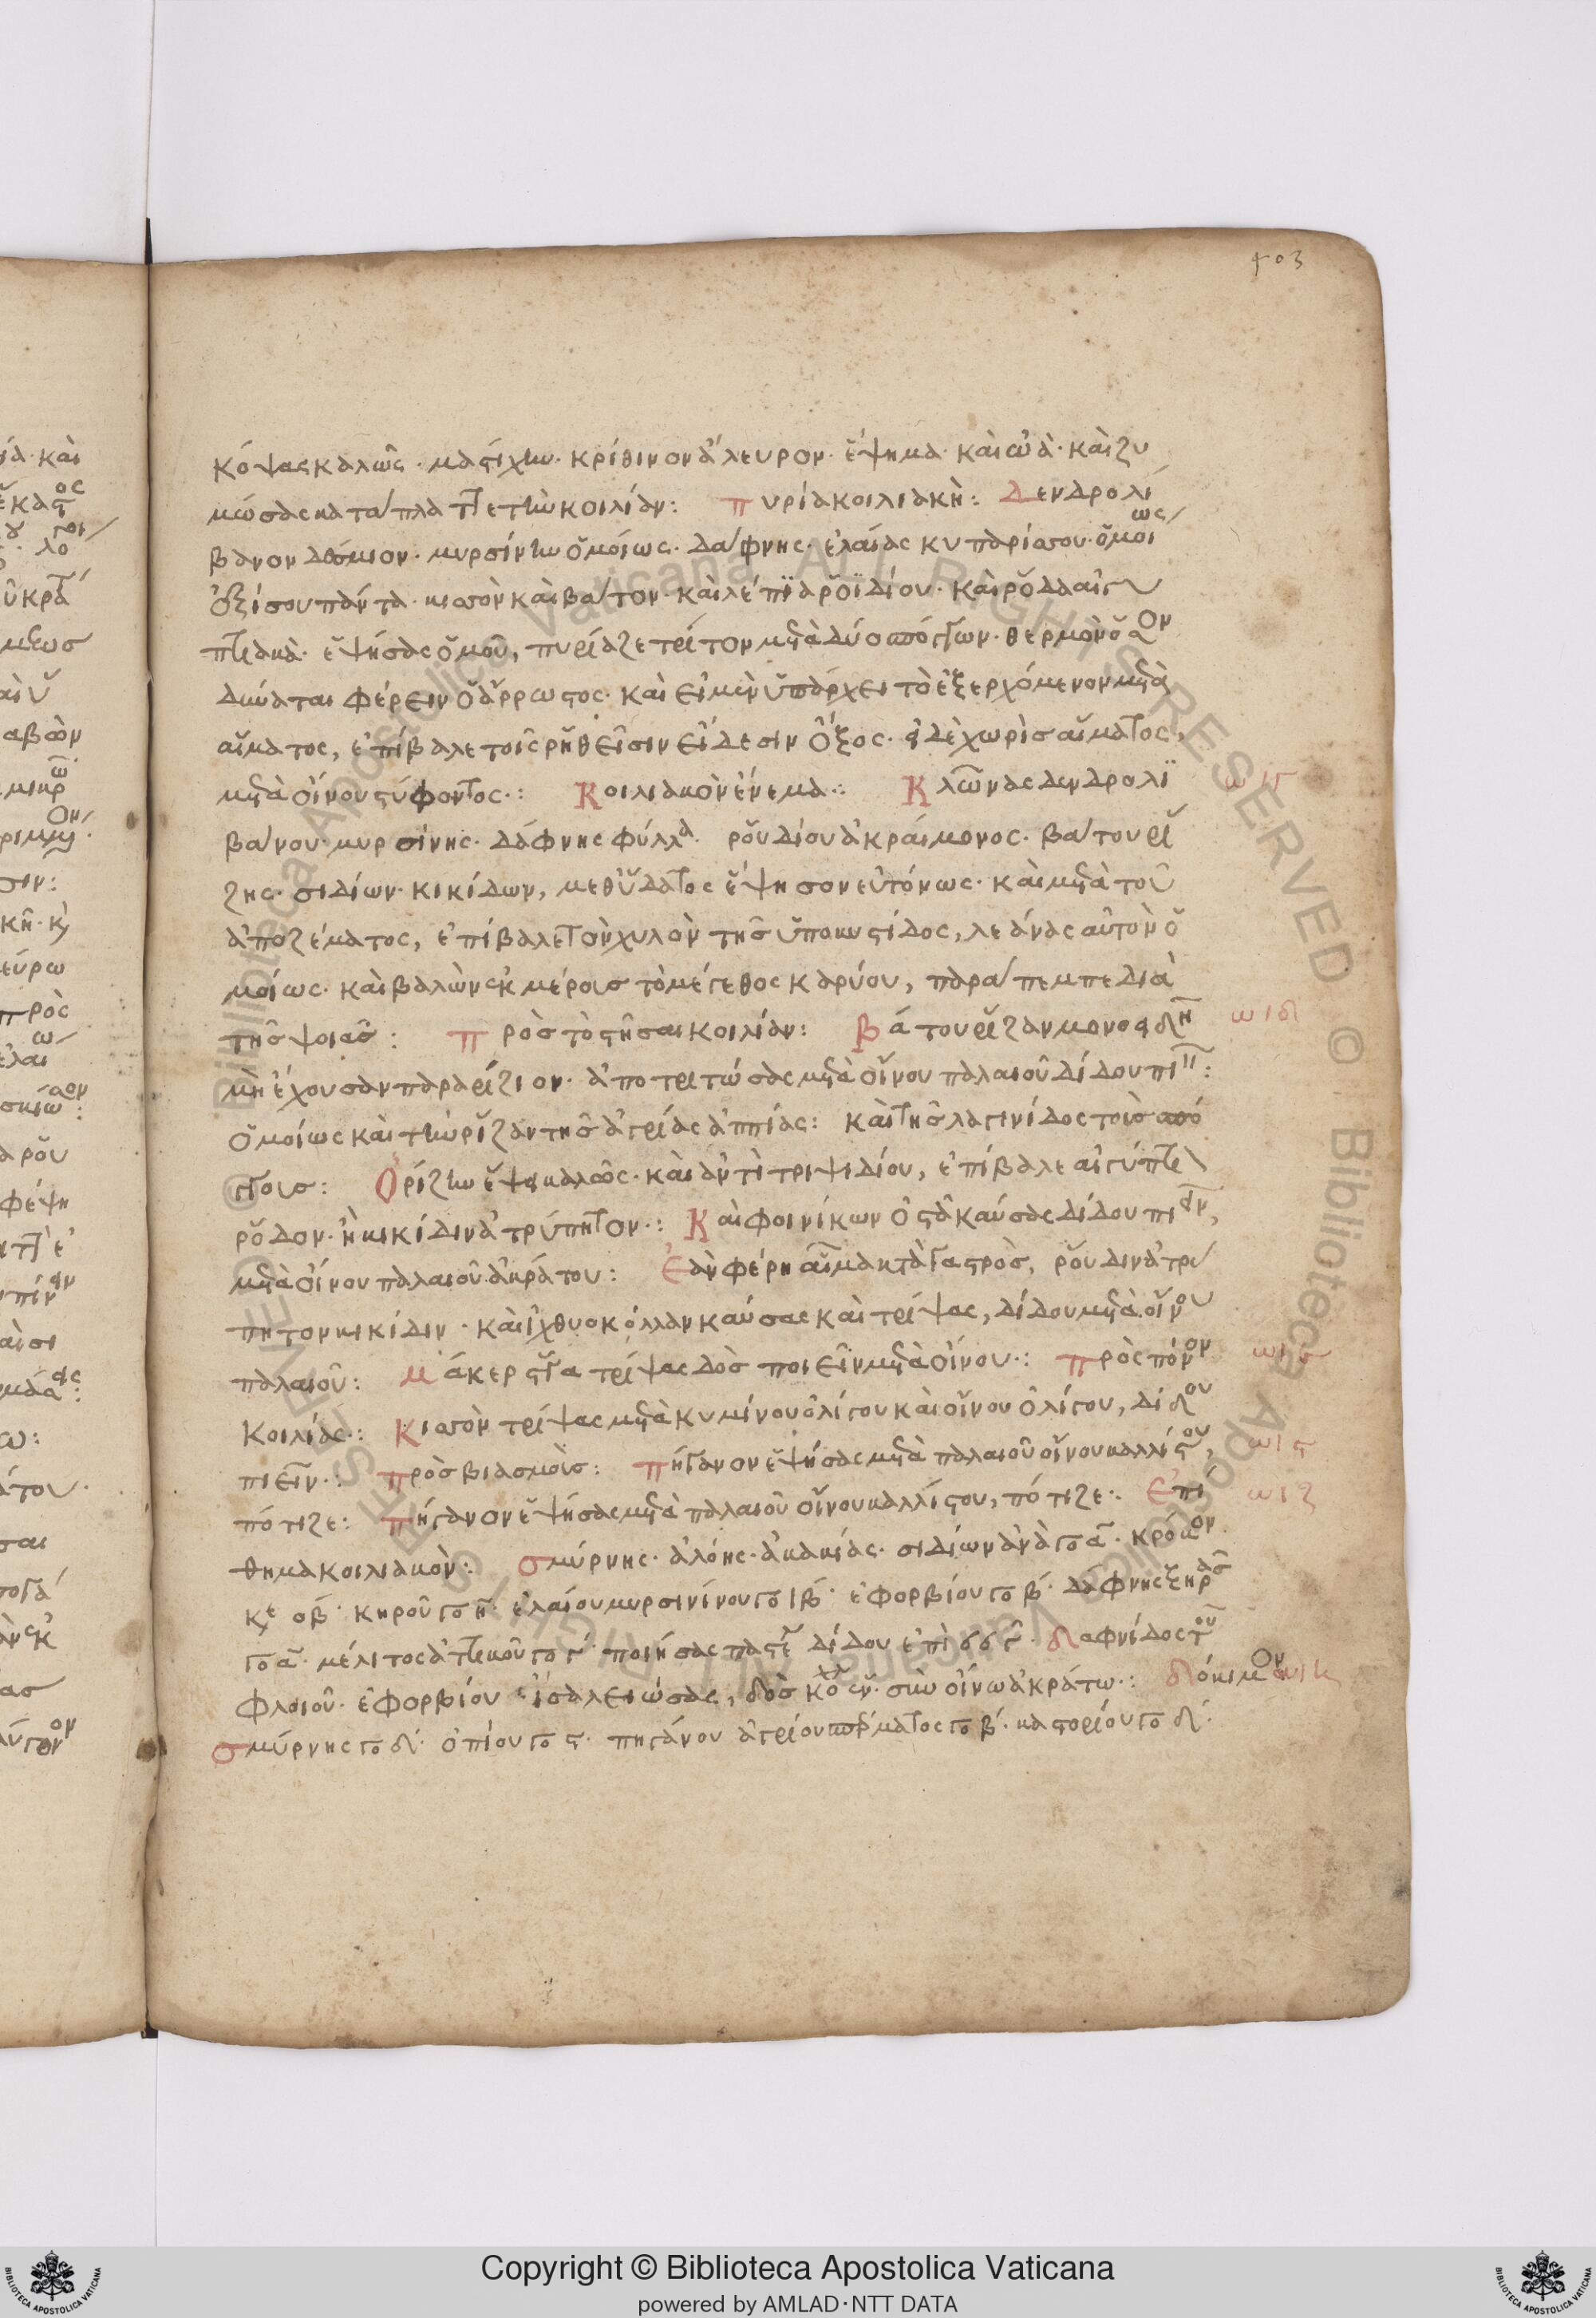 403
κόψας καλῶς· μαστίχην· κρίθινον ἄλευρον· ἕψημα· καὶ ὠὰ· καὶ ζυ
μώσας κατάπλαττε τὴν κοιλίαν: πυρία κοιλιακὴ: Δενδρολι
βανον δόσμιον· μυρσίνην ὁμοίως· δάφνης· ἐλαίας κυπαρίσσου· ὁμοίως
ἐξίσου πάντα· κισσὸν καὶ βάτον· καὶ λέπϋα ῥοϊδίου· καὶ ῥόδα αἰγυ
πτιακὰ· ἑψήσας ὁμοῦ, πυρίαζε τρίτον μετὰ δύο σπόγγων· θερμὸν ὅσον
δύναται φέρειν ὁ ἄρρωστος· καὶ εἰ μὲν ὑπάρχει τὸ ἐξερχόμενον μετὰ
αἵματος, ἐπίβαλε τοῖς ῥηθεῖσιν εἴδεσιν ὄξος· εἰ δὲ χωρὶς αἵματος,
μετὰ οἴνου στύφοντος: Κοιλιακὸν ἔνεμα: Κλῶνας δενδρολϊ
βάνου· μυρσίνης· δάφνης φύλλα· ῥουδίου ἀκραίμονος· βάτου ῥί
ζης· σιδίων· κικίδων, μεθ' ὕδατος ἕψησον εὐτόνως· καὶ μετὰ τοῦ
ἀποζέματος, ἐπίβαλε τὸν χυλὸν τῆς ὑποκυστίδος, λεάνας αὐτὸν ὁ
μοίως· καὶ βαλὼν ἐκ μέρους τὸ μέγεθος καρύου, παράπεμπε διὰ
τῆς ψοιᾶς: πρὸς τὸ στῆσαι κοιλίαν: Βάτου ῥίζαν μονοειδῆ ωιδ
μὴ ἔχουσαν παραρίζιον· ἀποτριτώσας μετὰ οἴνου παλαιοῦ δίδου πιεῖν:
ὁμοίως καὶ τὴν ῥίζαν τῆς ἀγρίας ἀππίας: καὶ τῆς λαγινίδος τοὺς σπό
γγους: Ὀρίζην ἕψε καλῶς· καὶ ἀντὶ τριψιδίου, ἐπίβαλε αἰγύπτιε
ῥόδον· ἢ κικίδιν ἀτρύπητον: Καὶ φοινίκων ὀστᾶ καύσας δίδου πιεῖν,
μετὰ οἴνου παλαιοῦ ἀκράτου: Ἐὰν φέρη αἷμα κατὰ γαστρὸς, ῥούδιν ἀτρύ
πητον κικίδιν· καὶ ἰχθυοκόλλαν καύσας καὶ τρίψας, δίδου μετὰ οἴνου
παλαιοῦ: Μάκερ στ γα τρίψας δὸς ποιεῖν μετὰ οἴνου: πρὸς πόνον ωιε
κοιλίας: Κισσὸν τρίψας μετὰ κυμίνου ὀλίγου καὶ οἴνου ὀλίγου, δίδου
πιεῖν: πρὸς βιασμοὺς: πήγανον ἑψήσας μετὰ παλαιοῦ οἴνου καλλίστου, ωις
πότιζε: πήγανον ἑψήσας μετὰ παλαιοῦ οἴνου καλλίστου, πότιζε: Ἐπί ωιζ
θημα κοιλιακὸν: σμύρνης· ἀλόης· ἀκακίας· σιδίων ἀνὰ γο α· κρόκον
κηροῦ γο η· ἐλαίου μυρσινίνου γο ιβ· ἐφορβίου γο β· δάφνης ξηρᾶς
γο α· μέλιτος ἀττικοῦ γο γ· ποιήσας δίδου ἐπὶ δαφνίδος τοῦ
φλοιοῦ· ἐφορβίου εἰσαλειώσας, δὸς σὺν οἴνω ἀκράτω: δόκιμον
σμύρνης γο δ· ὀπίου γο ς· πηγάνου ἀγρίου σπέρματος γο β· καστορίου γο δ·
Copyright © Biblioteca Apostolica Vaticana
powered by AMLAD·NTT DATA